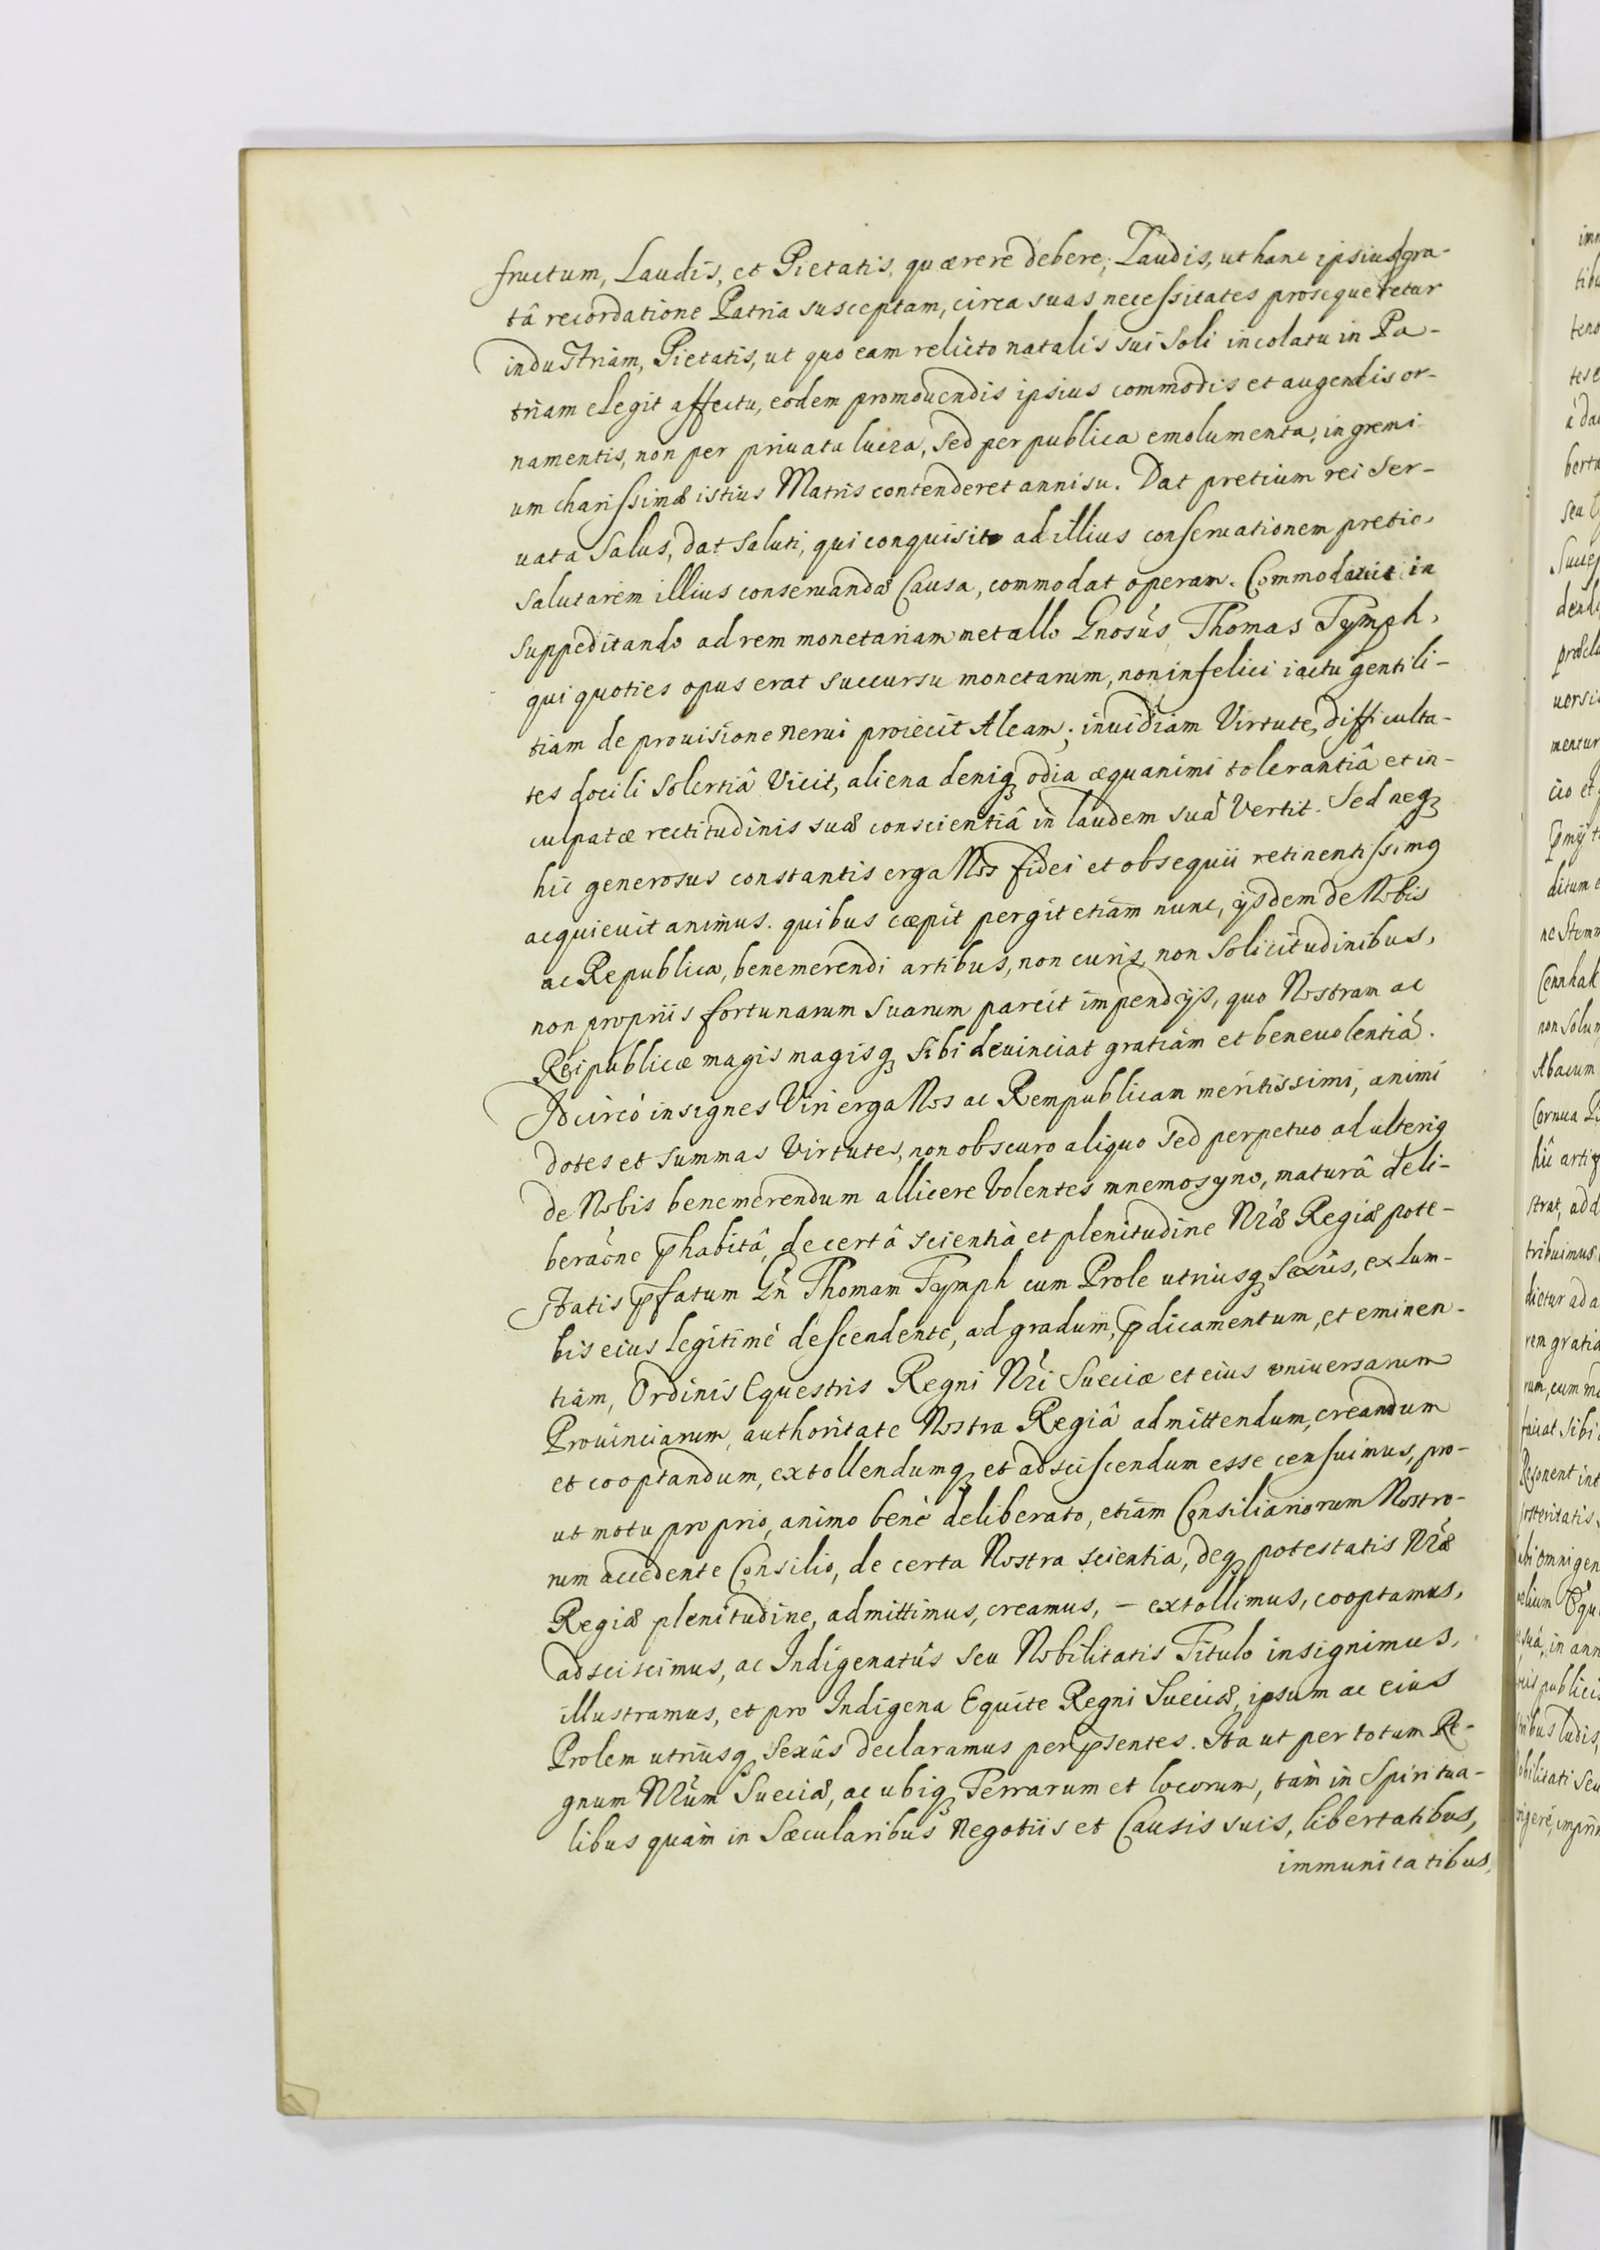 fructum, Laudis, et Pietatis, quærere debere; Laudis, ut hanc ipsius gra-
tâ recordatione Patria susceptam, circa suas necessitates prosequeretur
industriam, Pietatis, ut quo eam relicto natalis sui soli incolatu in Pa-
triam elegit affectu, eodem promouendis ipsius commodis et augendis or-
namentis, non per priuata lucra, sed per publica emolumenta, in gremi-
um charissimæ istius Matris contenderet annisu. Dat pretium rei ser-
uata Salus, dat saluti, qui conquisito ad illius conseruationem pretio,
salutarem illius conseruandæ Causa, commodat operam. Commodauit in
suppeditando ad rem monetariam metallo Gnosùs Thomas Tymph,
qui quoties opus erat succursu monetarum, non infelici iactu gentili-
tiam de prouisione nerui proiecit Aleam; inuidiam Virtute, difficulta-
tes docili solertiâ Vicit, aliena deniq3 odia æquanimi tolerantiâ et in-
culpatæ rectitudinis suæ conscientiâ in laudem suã Vertit. Sed neq3
hic generosus constantis erga Nos fidei et obsequii retinentissimq
acquieuit animus. quibus cæpit pergit etiam nunc, ijsdem de Nobis
ac Republica, benemerendi artibus, non curis, non solicitudinibus,
non propriis fortunarum suarum parcit impendijs, quo Nostram ac
Reipublicæ magis magisq3 sibi deuinciat gratiam et beneuolentiã.
Idcircò insignes Viri erga Nos ac Rempublicam meritissimi, animi
dotes et summas Virtutes, non obscuro aliquo sed perpetuo ad ulteriq
de Nobis benemerendum allicere Volentes mnemosyno, maturâ deli-
beraõne p̃habitâ, de certâ scientià et plenitudine Nr̃æ Regiæ pote-
statis p̃fatum Gñ Thomam Tymph cum Prole utriusq3 sexûs, ex lum-
bis eius legitimè descendente, ad gradum, p̃dicamentum, et eminen-
tiam, Ordinis Equestris Regni Nr̃i Sueciæ et eius vniuersarum
Prouinciarum, authoritate Nostra Regiâ admittendum, creandum
et cooptandum, extollendumq3 et adsciscendum esse censuimus, pro-
ut motu proprio, animo benè deliberato, etiam Consiliariorum Nostro-
rum accedente Consilio, de certa Nostra scientia, deq3 potestatis Nr̃æ
Regiæ plenitudine, admittimus, creamus, - extollimus, cooptamus,
adsciscimus, ac Indigenatûs seu Nobilitatis Titulo insignimus,
illustramus, et pro Indigena Equite Regni Sueciæ, ipsum ac eius
Prolem utriusq3 sexûs declaramus per p̃sentes. Ita ut per totum Re-
gnum Nr̃um Sueciæ, ac ubiq3 Terrarum et locorum, tàm in Spiritua-
libus quàm in Sæcularibus Negotiis et Causis suis, libertatibus,
immunitatibus,